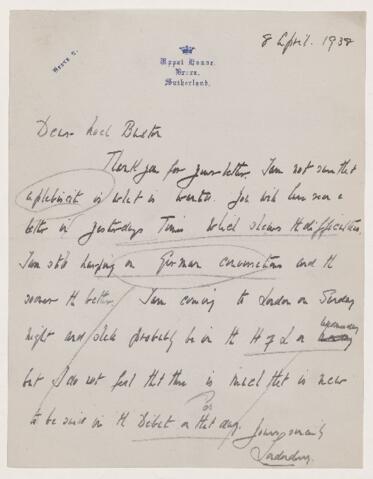 8 April. 1938
Uppat House.
Brora.
Sutherland.
Dear Noel Buxton
Thank you for your letter. I am not sure that
a plebiscite is what is wanted. You will have seen a
letter in yesterdays Times which shews the difficulties.
I am still hanging on German conversations and the
sooner the better. I am coming to London on Sunday
night and shall probably be in the H of L on Wednesday
but I do not feel that there is much that is new
to be said in the Debate on that day.
Yours sincerely
Londonderry.